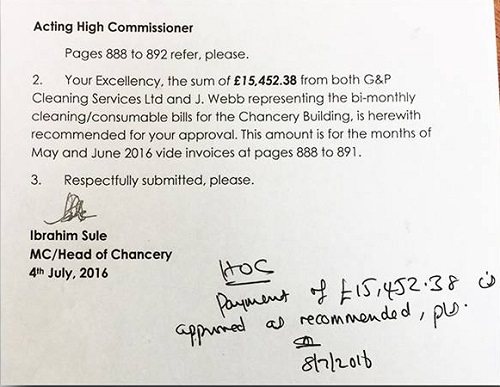 Acting High Commissioner
Pages 888 to 892 refer, please.
2. Your Excellency, the sum of £15,452.38 from both G&P
Cleaning Services Ltd and J. Webb representing the bi-monthly
cleaning/consumable bills for the Chancery Building, is herewith
recommended for your approval. This amount is for the months of
May and June 2016 vide invoices at pages 888 to 891.
3. Respectfully submitted, please.
Ibrahim Sule
MC/Head of Chancery
4th July, 2016
HOC
Payment of £15,452.38 is
approved as recommended, pls.
8/7/2016